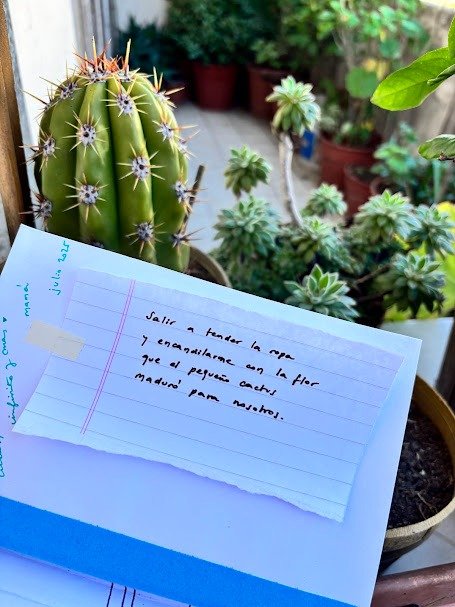 Salir a tender la ropa
y encandilarme con la flor
que el pequeño cactus
maduró para nosotros.
infinito y más ♥
mamá
julio 2025